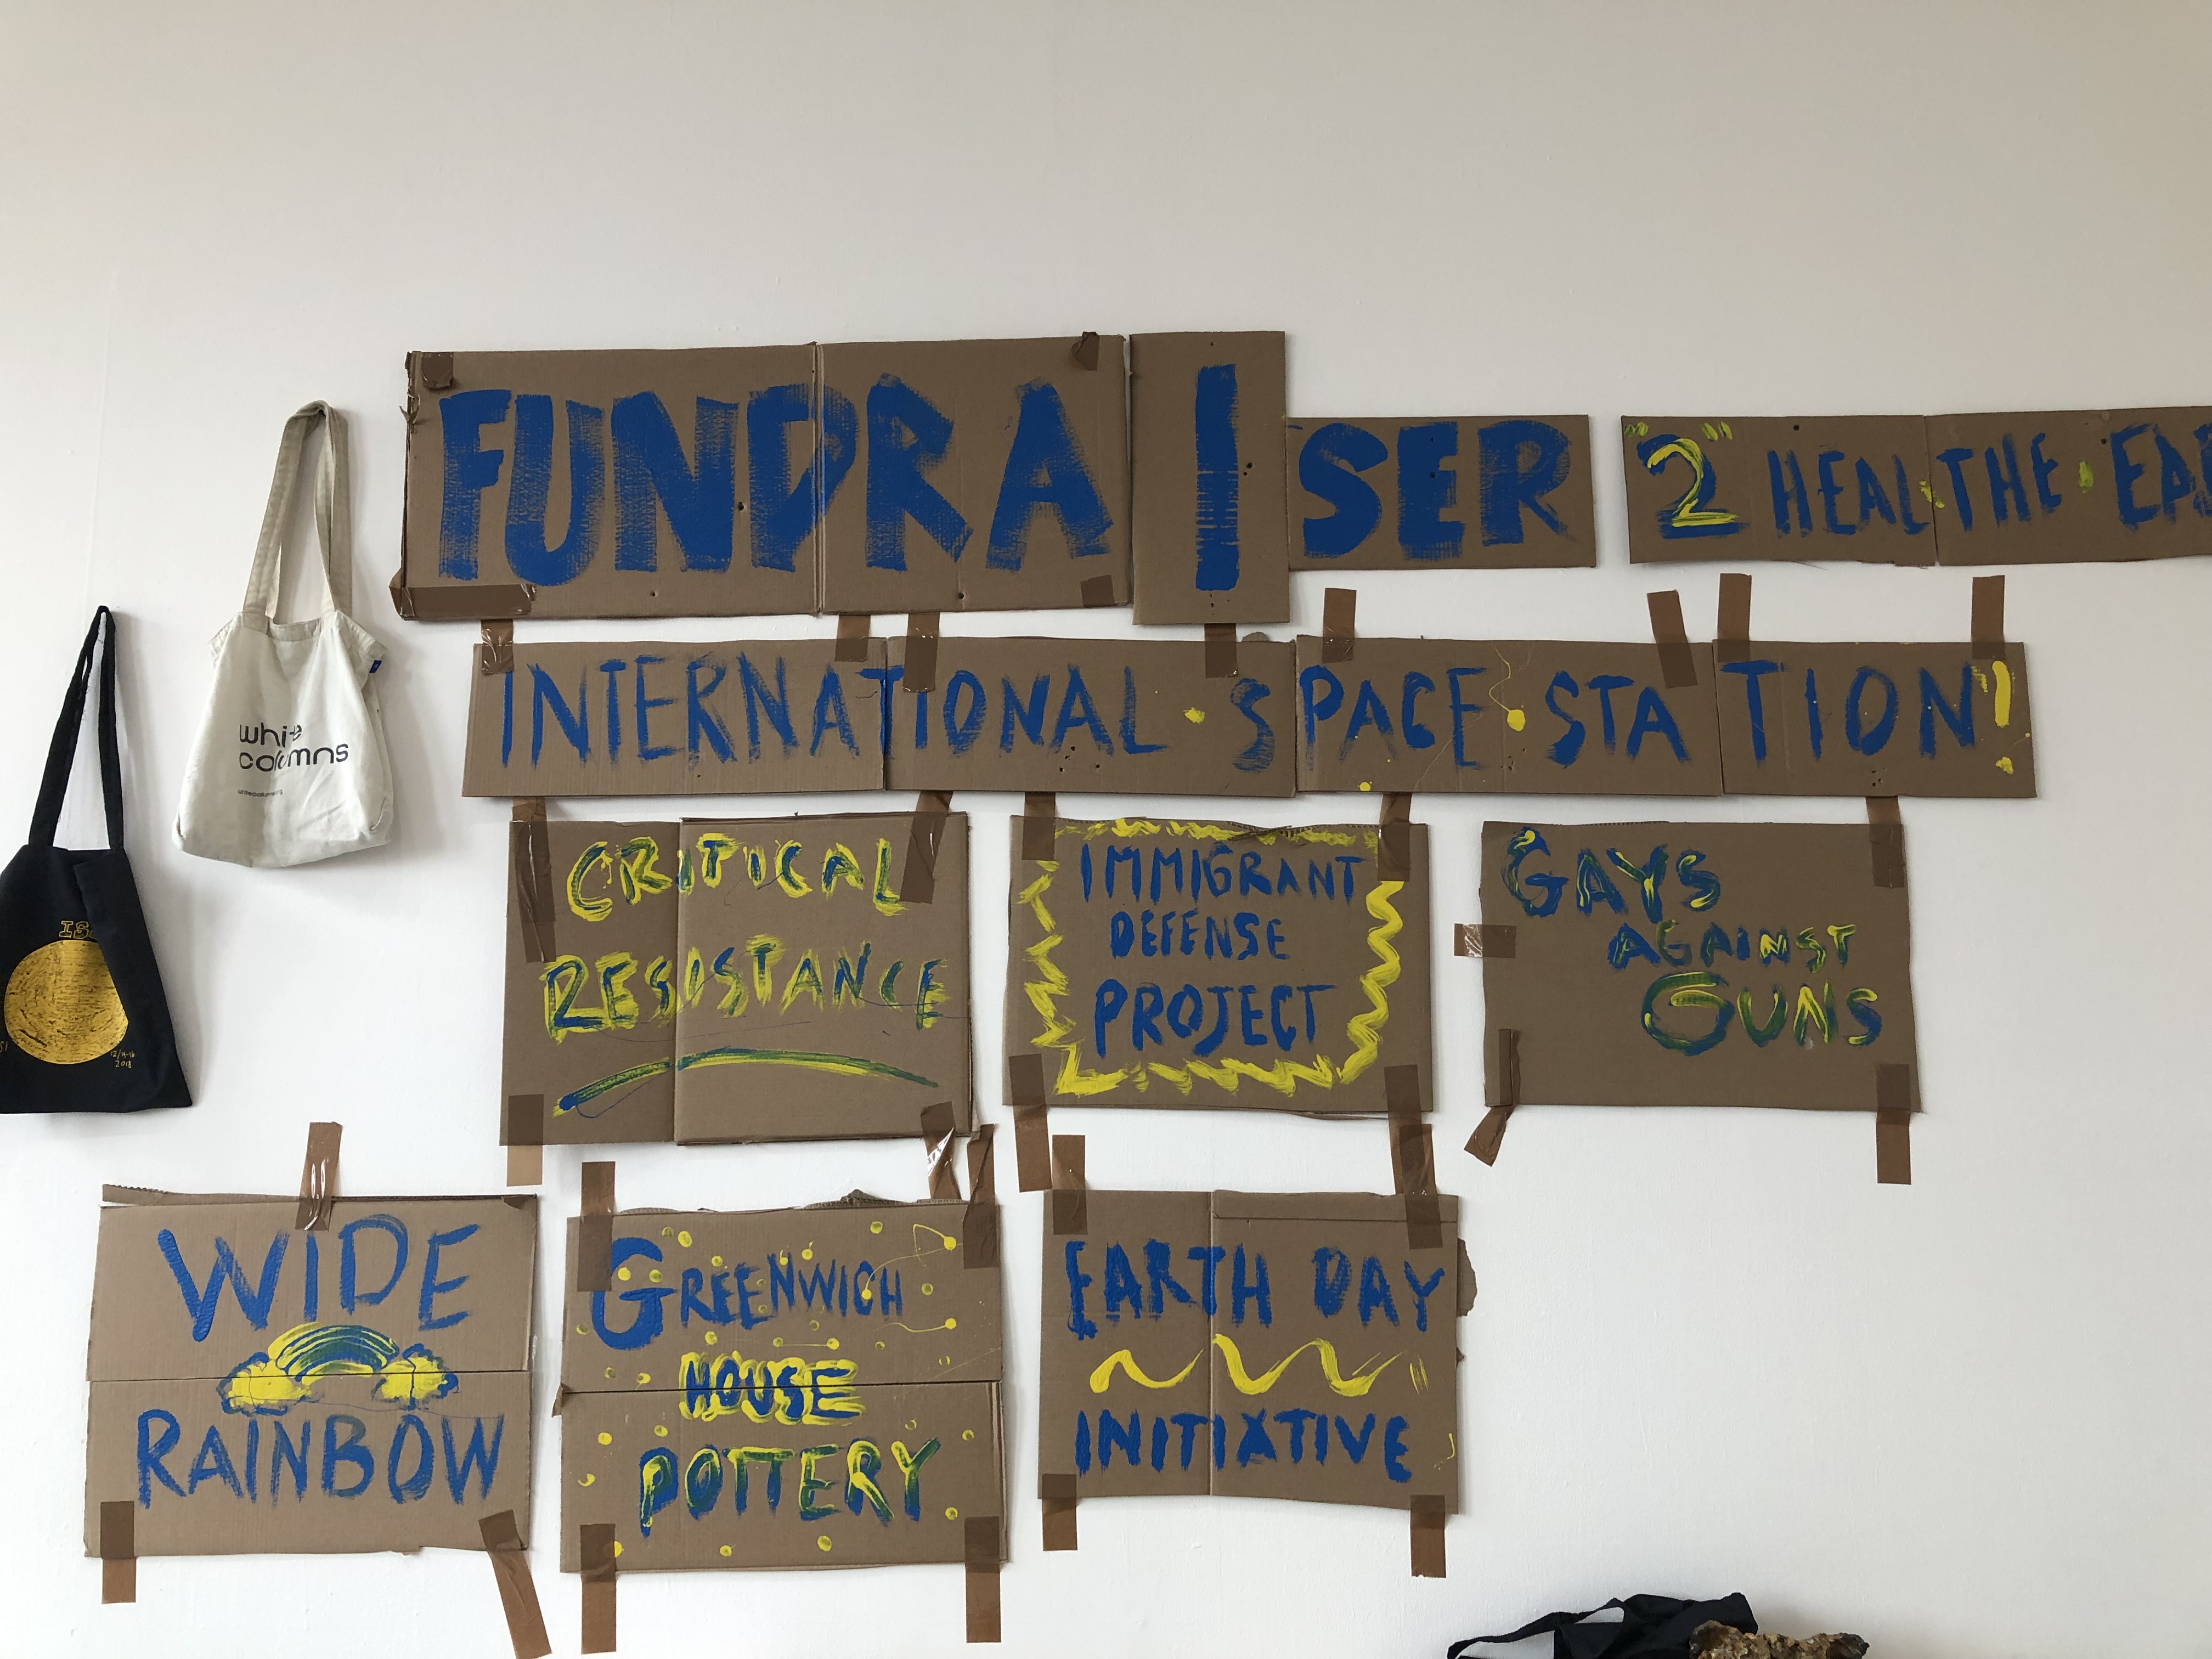 FUNDRAISER "2" HEAL THE EAR
INTERNATIONAL · SPACE · STATION!
white
columns
CRITICAL
RESISTANCE
IMMIGRANT
DEFENSE
PROJECT
GAYS
AGAINST
GUNS
12/14-16
2018
WIDE
RAINBOW
GREENWICH
HOUSE
POTTERY
EARTH DAY
INITIATIVE